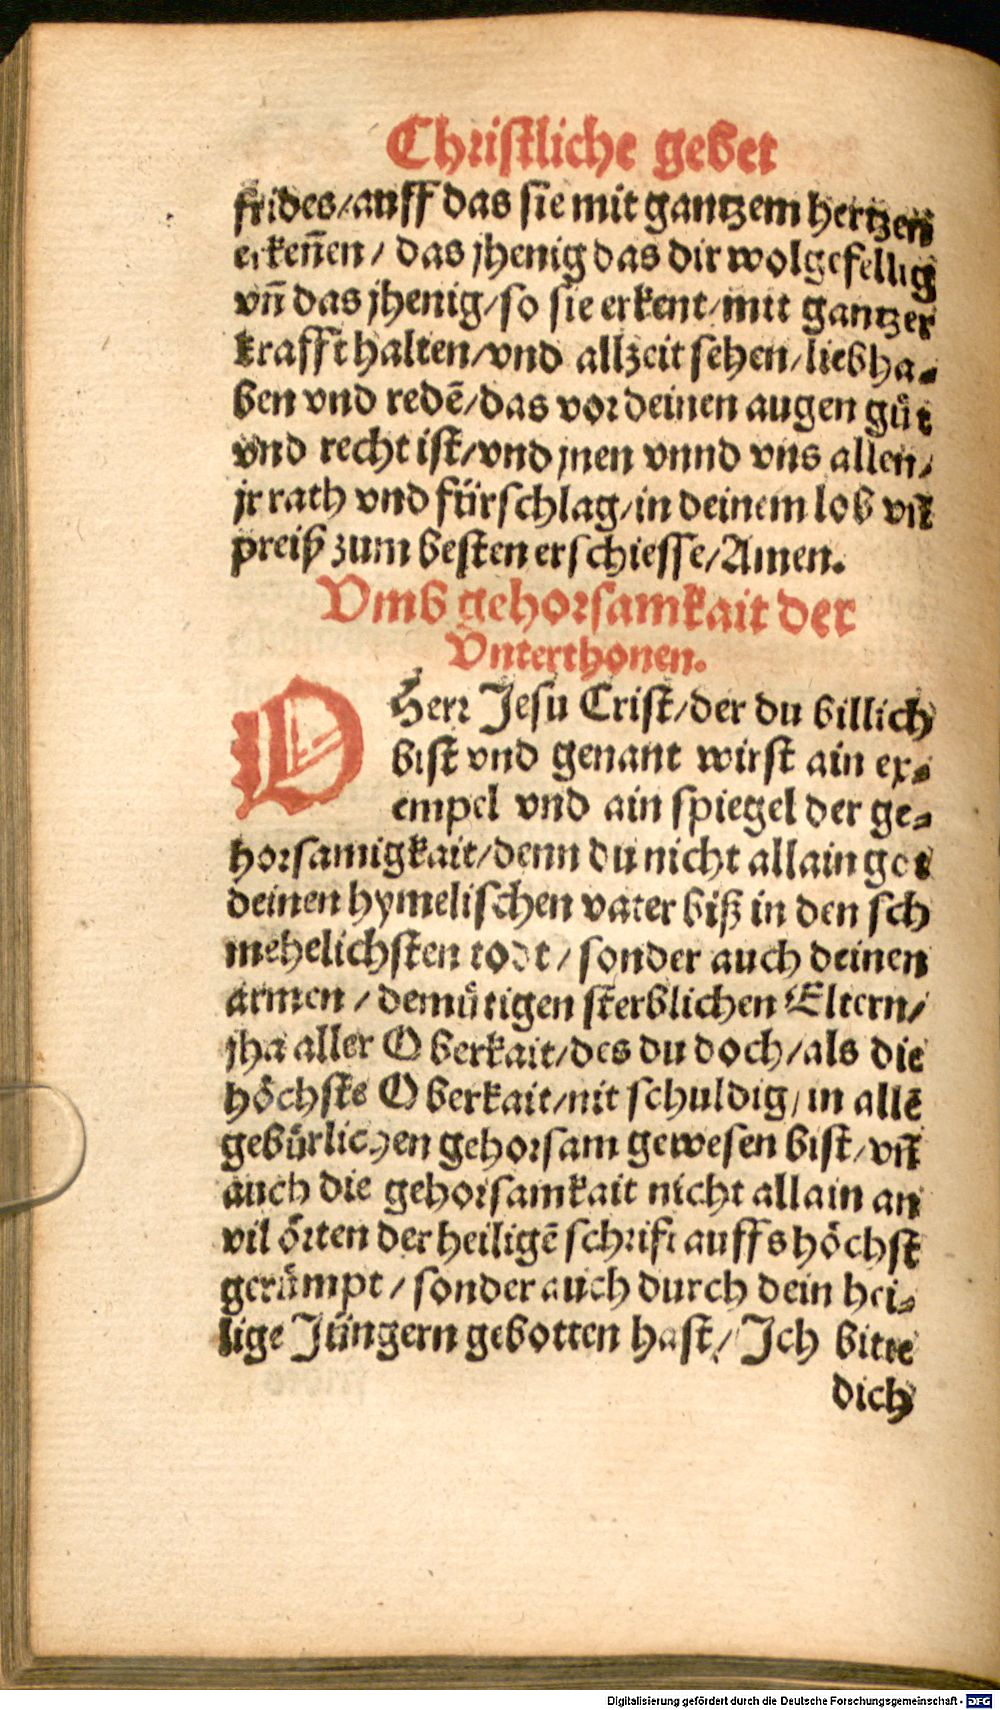 Christliche gebet
frides/auff das sie mit gantzem hertzen
erkeñen/ das jhenig das dir wolgefellig
vñ das jhenig/so sie erkent/mit gantzer
krafft halten/vnd allzeit sehen/liebha-
ben vnd redē/das vor deinen augen gůt
vnd recht ist/vnd jnen vnnd vns allen/
jr rath vnd fürschlag/in deinem lob vñ
preiß zum besten erschiesse/Amen.
Vmb gehorsamkait der
Vnterthonen.
O Herr Jesu Crist/der du billich
bist vnd genant wirst ain ex-
empel vnd ain spiegel der ge-
horsamigkait/denn du nicht allain got
deinen hymelischen vater biß in den sch
mehelichsten todt/ sonder auch deinen
armen/ demütigen sterblichen Eltern/
jha aller Oberkait/des du doch/als die
höchste Oberkait/nit schuldig/in allē
gebürlichen gehorsam gewesen bist/vñ
auch die gehorsamkait nicht allain an
vil örten der heiligē schrift auffs höchst
gerümpt/ sonder auch durch dein hei-
lige Jüngern gebotten hast/ Ich bitte
dich
Digitalisierung gefördert durch die Deutsche Forschungsgemeinschaft - DFG